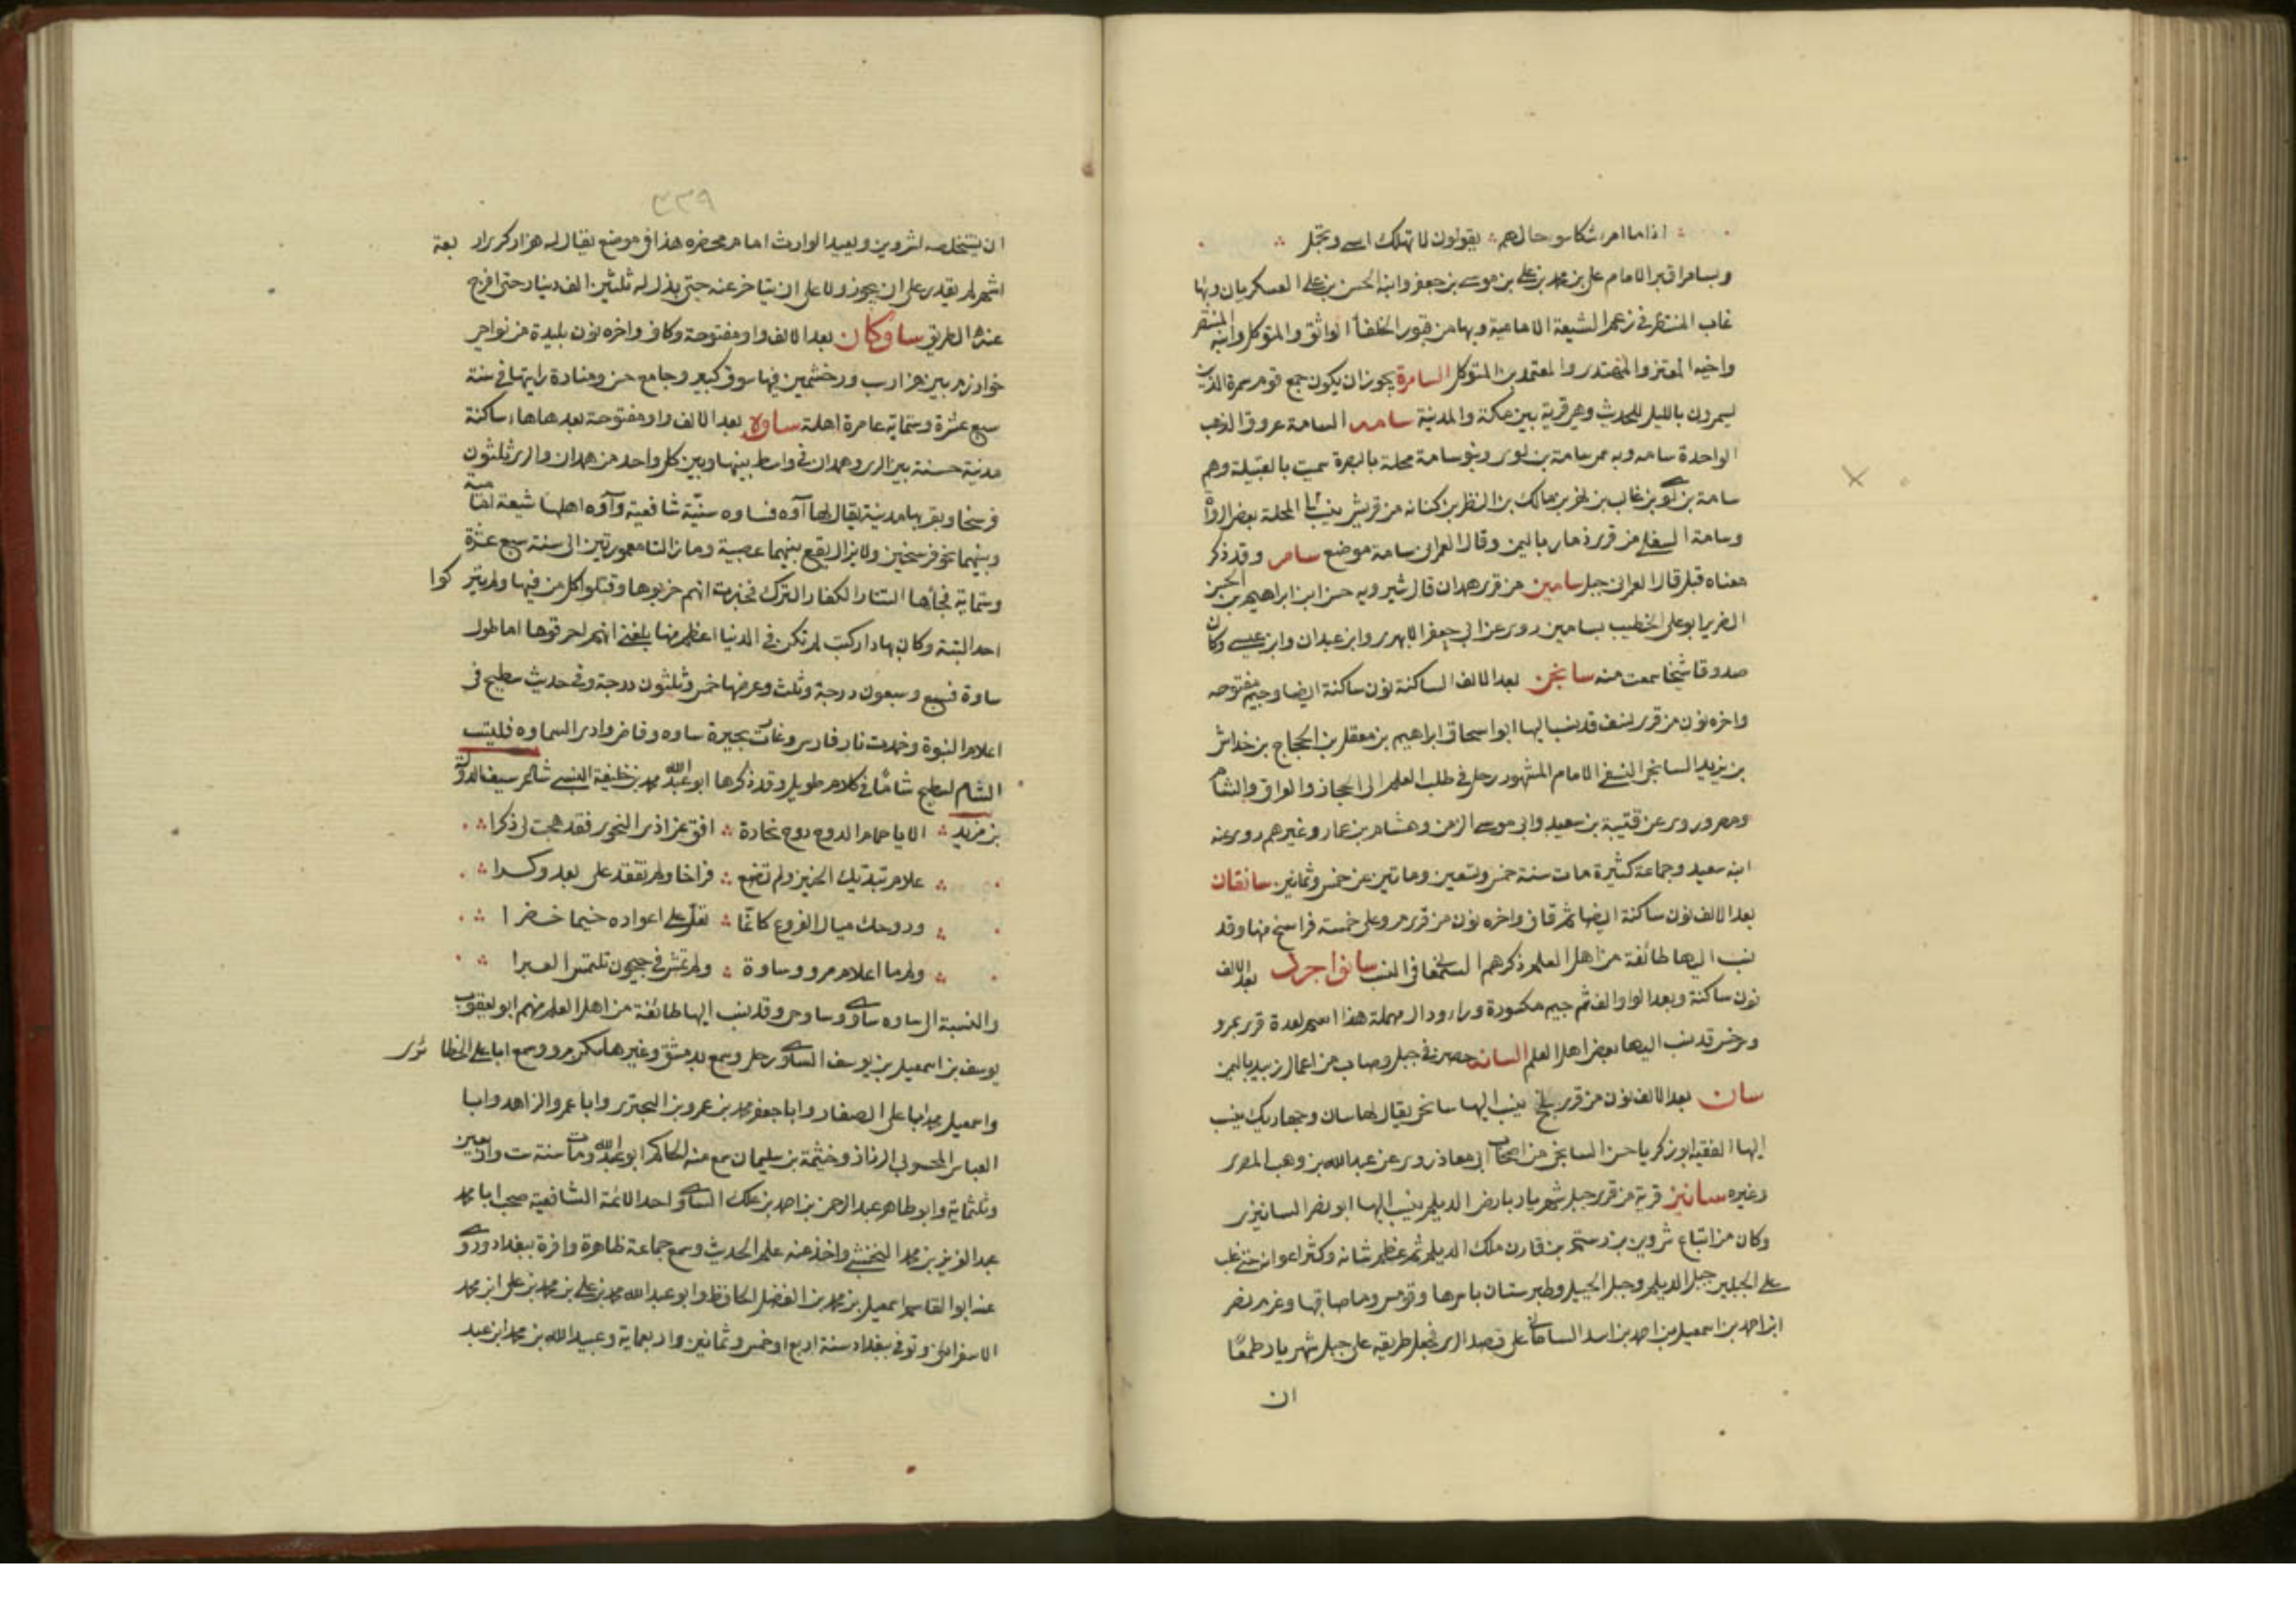 اذا ما امرء شكا سوء حالهم يقولون لا تهلك اسى وتجمل
وبسامرا قبر الامام على بن محمد بن على بن موسى بن جعفر وابنه الحسن بن على العسكريان وبها
غاب المنتظر فى زعم الشيعة الامامية وبها من قبور الخلفأ الواثق والمتوكل وابنه المنتصر
واخيه المعتز والمهتدى والمعتمد بن المتوكل السامرة يجوز ان يكون جمع قوم سمرة الذين
يسمرون بالليل للحديث وهى قرية بين مكة والمدينة سامه السامة عروق الذهب
الواحدة سامه وبه سمى سامة بن لوى وبنو سامة محلة بالبصرة سميت بالقبيلة وهم
سامة بن لوى بن غالب بن فهر بن مالك بن النظر بن كنانه من قريش ينسب الى المحلة بعض الرواة
وسامة السفلى من قرى ذمار باليمن وقال العمرانى سامة موضع سامر وقد ذكر
معناه قبل قال العمرانى جبل سامين من قرى همدان قال شيرويه حسن ابن ابراهيم بن الحسين
الضرير ابو على الخطيب بسامين روى عن ابى جعفر الابهرى وابن عبدان وابن عيسى وكان
صدوقا شيخا سمعت منه سانجن بعد الالف الساكنة نون ساكنة ايضا وجيم مفتوحه
واخره نون من قرى نسف قد نسب اليها ابو اسحاق ابراهيم بن معقل بن الحجاج بن خداش
بن يزيد السانجنى النسفى الامام المشهور رحل فى طلب العلم الى الحجاز والعراق والشام
ومصر وروى عن قتيبة بن سعيد وابى موسى الزمن وهشام بن عمار وغيرهم روى عنه
ابنه سعيد وجماعة كثيرة مات سنة خمس وتسعين وماتين عن خمس وثمانين سانقان
بعد الالف نون ساكنة ايضا ثم قاف واخره نون من قرى مرو على خمسة فراسخ منها وقد
نسب اليها طائفة من اهل العلم ذكرهم السمعانى فى النسب سانواجرد بعد الالف
نون ساكنة وبعد الواو الف ثم جيم مكسورة وراء ودال مهملة هذا اسم لعدة قرى بمرو
وسرخس قد نسب اليها بعض اهل العلم السانه حصن فى جبل وصاب من اعمال زبيد باليمن
سان بعد الالف نون من قرى بلخ ينسب اليها سانجى يقال لها سان وجهاريك ينسب
اليها الفقيه ابو زكريا حسن السانجى من اصحاب ابى معاذ روى عن عبد الله بن وهب المصرى
وغيره سانيز قرية من قرى جبل شهريار بارض الديلم ينسب اليها ابو نصر السانيزى
وكان من اتباع شروين بن رستم بن قارن ملك الديلم ثم عظم شانه وكثر اعوانه حتى غلب
على الجبلين جبل الديلم وجبل الجيل وطبرستان باسرها وقومس وما صاقبها وعزم نصر
ابن احمد بن اسمعيل بن احمد بن اسد السامانى على قصد الرى فجعل طريقه على جبل شهريار طمعًا
ان
٣٣٩
ان يستخلصه لشروين وبعيد الوارث اما م محضره هذا فى موضع يقال له هزار كرى اربعة
اشهر لم يقدر على ان يجوز ولا على ان يتاخر عنه حتى بذل له ثلثين الف دينار حتى افرج
عنه الطريق ساوكان بعد الالف واو مفتوحة وكاف واخره نون بليدة من نواحى
خوارزم بين هزاراسب ودرخشمين فيها سوق كبير وجامع حسن ومنارة رايتها فى سنة
سبع عشرة وستماية عامرة اهلة ساوه بعد الالف واو مفتوحة بعدها هاء ساكنة
مدينة حسنة بين الرى وهمدان فى واسط بينها وبين كل واحد من همدان والرى ثلثون
فرسخا وبقربها مدينة يقال لها آوه فساوه سنيّة شافعية وآوه اهلها شيعة امامية
وبينهما نحو فرسخين ولا يزال يقع بينهما عصبية وما زالتا معمورتين الى سنة سبع عشرة
وستماية فجأها التتار الكفار الترك فخبرت انهم خربوها وقتلوا كل من فيها ولم يتركوا
احدا البتة وكان بها دار كتب لم تكن فى الدنيا اعظم منها بلغنى انهم احرقوها اما طول
ساوة فسبع وسبعون درجة وثلث وعرضها خمس وثلثون درجة وفى حديث سطيح فى
اعلام النبوة وخمدت نار فارس وغارت بحيرة ساوه وفاض وادى السماوه فليست
الشام لسطيح شامًا فى كلام طويل وقد ذكرها ابو عبد الله محمد بن خليفة السنبسى شاعر سيف الدولة
بن مزيد الا يا حمام الدوح دوح نجادة افق عن اذى النجوى فقد هجت لى ذكرا
علام تبديك الحنين ولم تضع فراخا ولم تفقد على بعد وكرا
ودوحك ميال الفروع كانما تقل على اعواده خيما خضرا
ولم ما اعلام مرو وساوة ولم تمش فى جيحون تلتمس العبرا
والنسبة الى ساوه ساوى وساوجى وقد نسب اليها طائفة من اهل العلم منهم ابو يعقوب
يوسف بن اسمعيل بن يوسف الساوى رحل وسمع بدمشق وغيرها سكن مرو وسمع ابا على الحظائرى
واسمعيل بن محمد ابا على الصفار وابا جعفر محمد بن عمرو بن البحترى وابا عمرو الزاهد وابا
العباس المحبوبى الرزاز وخيثمة بن سليمان سمع منه الحاكم ابو عبد الله ومات سنة ست واربعين
وثلثماية وابو طاهر عبد الرحمن بن احمد بن علك الساوى احد الائمة الشافعية صحب ابا محمد
عبد العزيز بن محمد النخشبى واخذ عنه علم الحديث وسمع جماعة ظاهرة وافرة ببغداد وروى
عنه ابو القاسم اسمعيل بن محمد بن الفضل الحافظ وابو عبد الله محمد بن على بن محمد بن على ابن محمد
الاسفرائنى وتوفى ببغداد سنة اربع او خمس وثمانين واربعماية وعبيد الله بن محمد ابن عبد